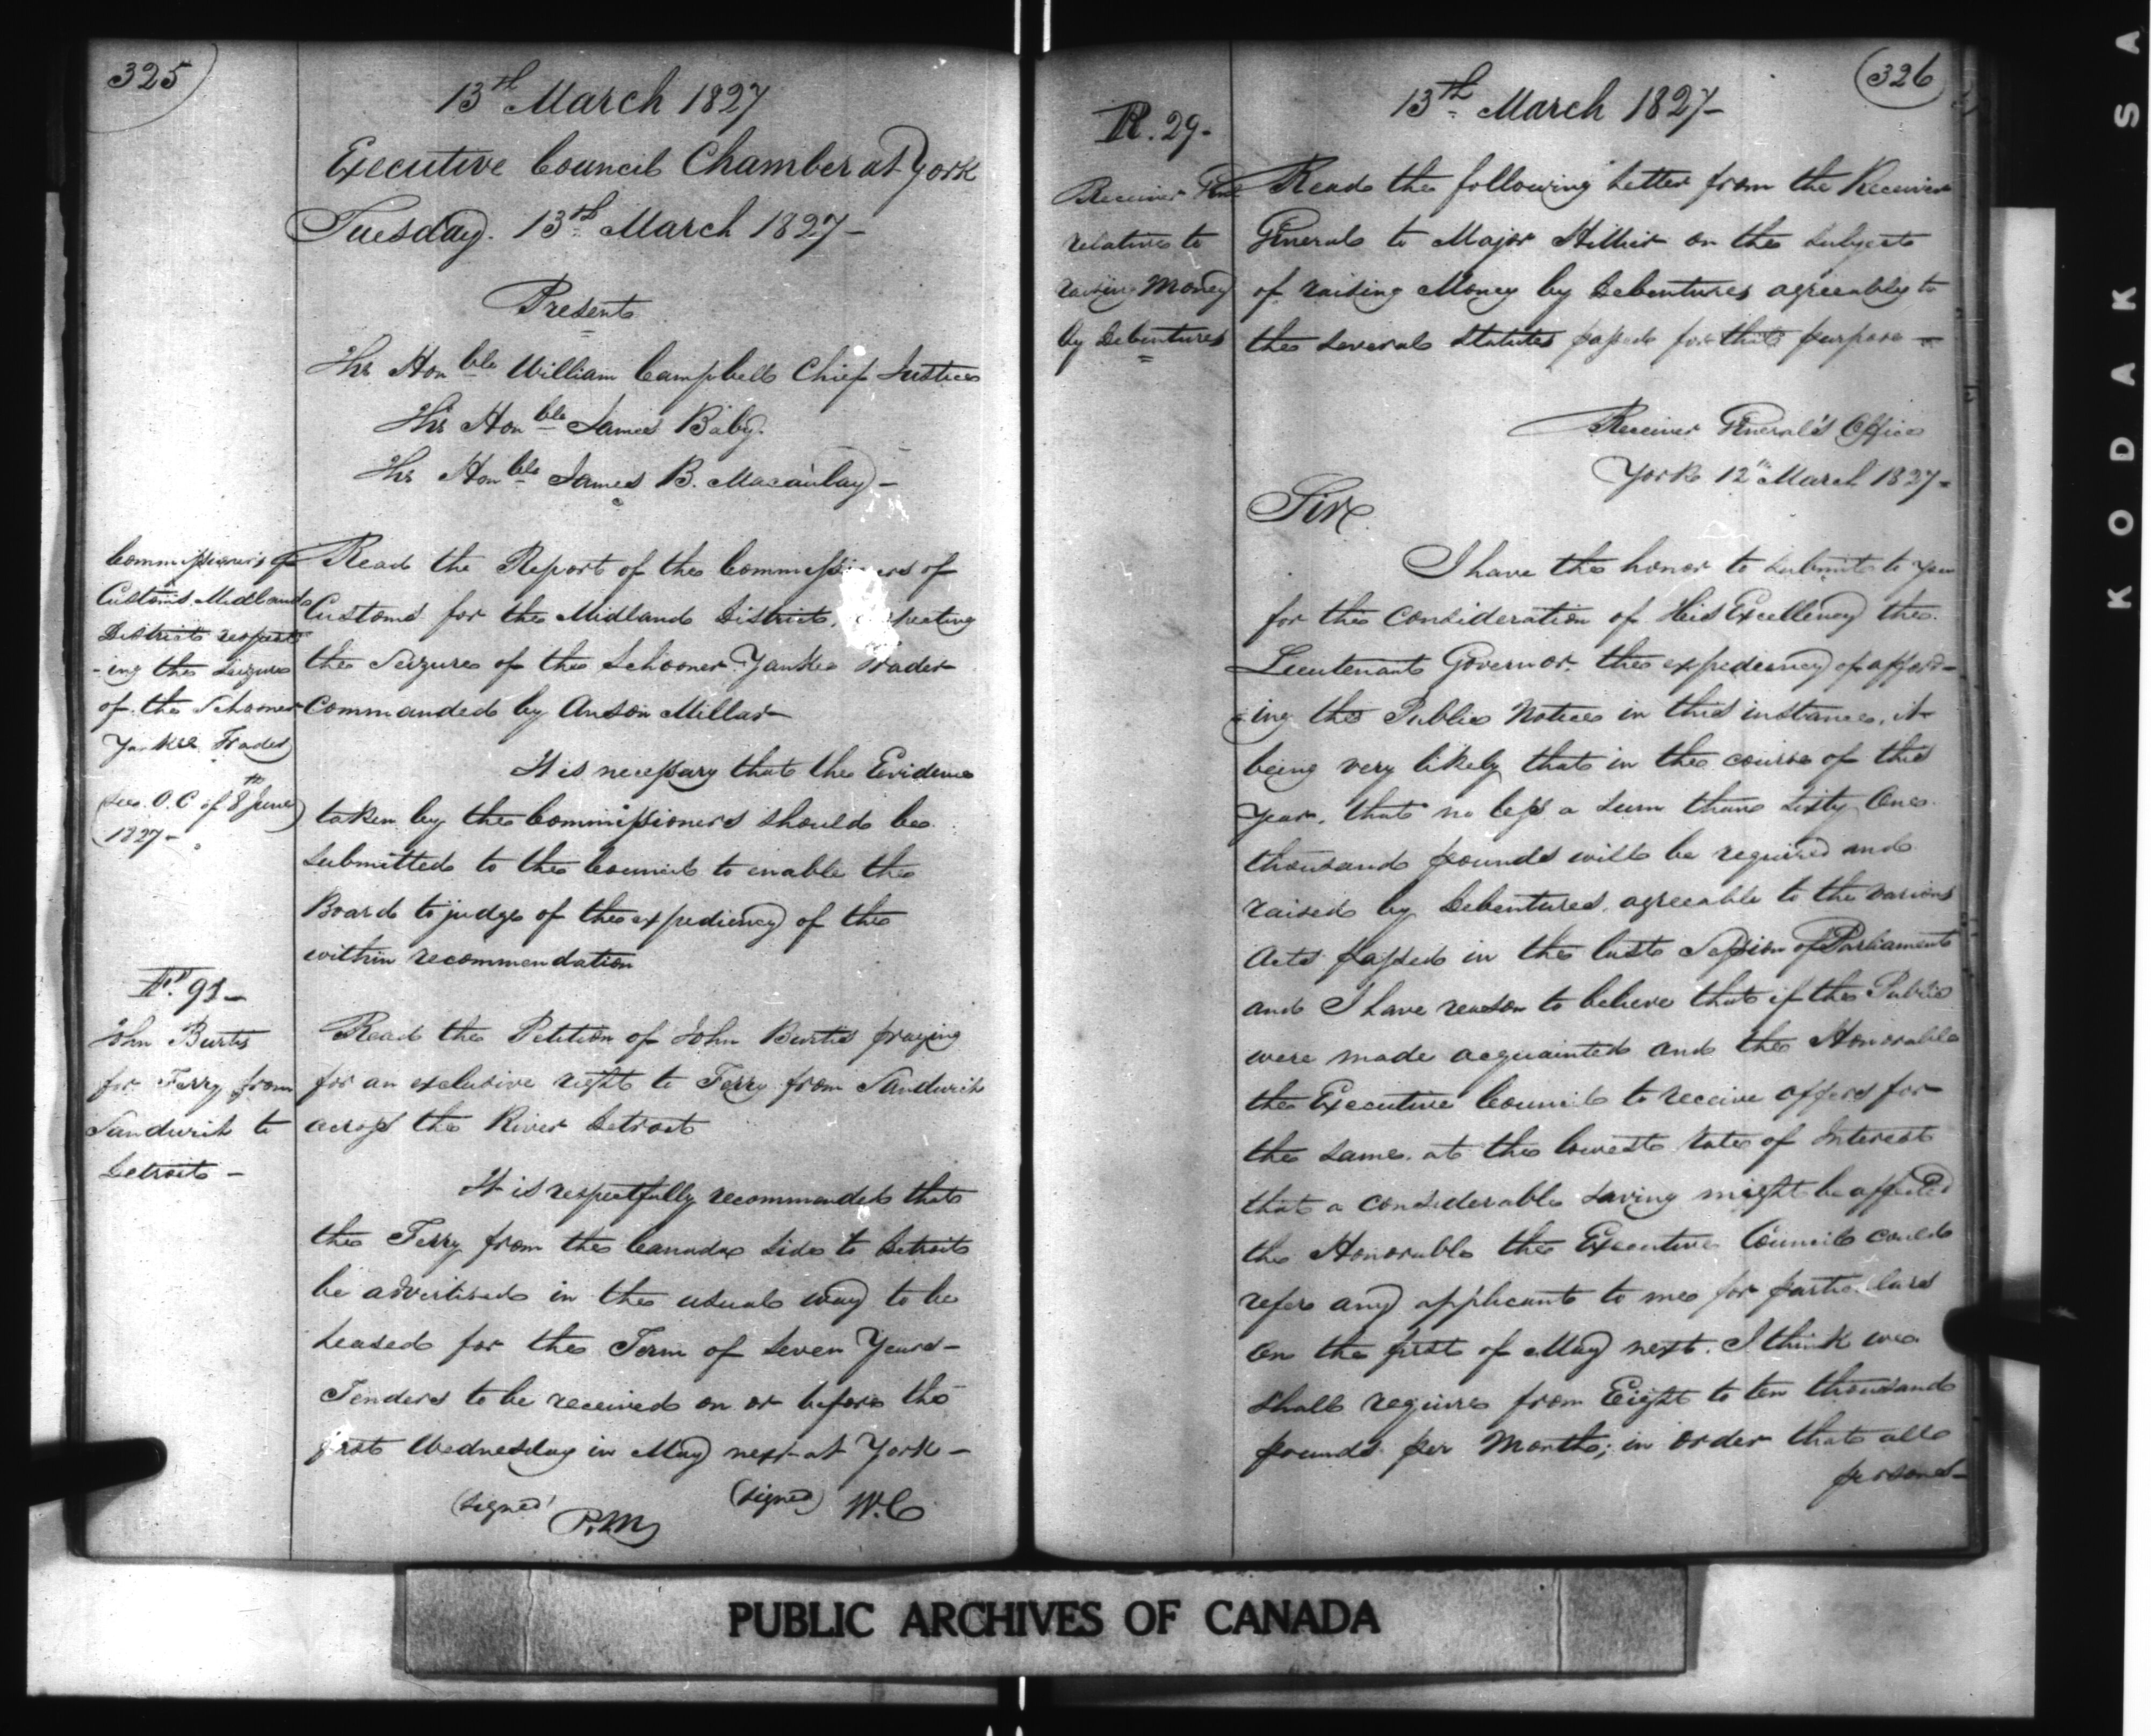 325
13th March 1827
Executive Council Chamber at York
Tuesday. 13th March 1827-
Present
The Honble William Campbell Chief Justice
The Honble James Baby.
The Honble James B. Macaulay-
Commissioners of
Customs Midland
District respect
-ing the Seizure
of the Schooner
Yankee Trader
(see O.C of 8th June
1827-
Read the Report of the Commissioners of
Customs for the Midland District,
the Seizure of the Schooner Yankee Trader
Commanded by Anson Millar
It is necessary that the Evidence
taken by the Commissioners should be
submitted to the Council to enable the
Board to judge of the expediency of the
within recommendation
91-
John Burtis
for Ferry from
Sandwich to
Detroit-
Read the Petition of John Burtis praying
for an exclusive right to Ferry from Sandwich
across the River Detroit
It is respectfully recommended that
the Ferry from the Canada side to Detroit
be advertised in the usual way to be
Leased for the Term of Seven Years-
Tenders to be received on or before the
first Wednesday in May next at York-
(signed)
(signed) W.C
326
13th March 1827-
R. 29-
Receiver Genl
relative to
raising Money
by Debentures
Read the following Letter from the Receiver
General to Major Hillier on the subject
of raising Money by Debentures agreeably to
the several Statutes passed for that purpose-
Receiver General's Office
York 12th March 1827-
Sir
I have the honor to submit to you
for the consideration of His Excellency the
Lieutenant Governor, the expediency of afford-
-ing the Public Notice in this instance, it
being very likely that in the course of this
year, that no less a sum than Sixty One
thousand pounds will be required and
raised by Debentures, agreeable to the various
Acts passed in the last Session of Parliament
and I have reason to believe that if the Public
were made acquainted and the Honorable
the Executive Council to receive offers for
the same, at the lowest rate of Interest
that a considerable saving might be affected
the Honorable the Executive Council could
refer any applicant to me for particulars
on the first of May next. I think we
shall require from Eight to ten thousand
pounds per Month; in order that all
persons-
PUBLIC ARCHIVES OF CANADA
KODAK SA